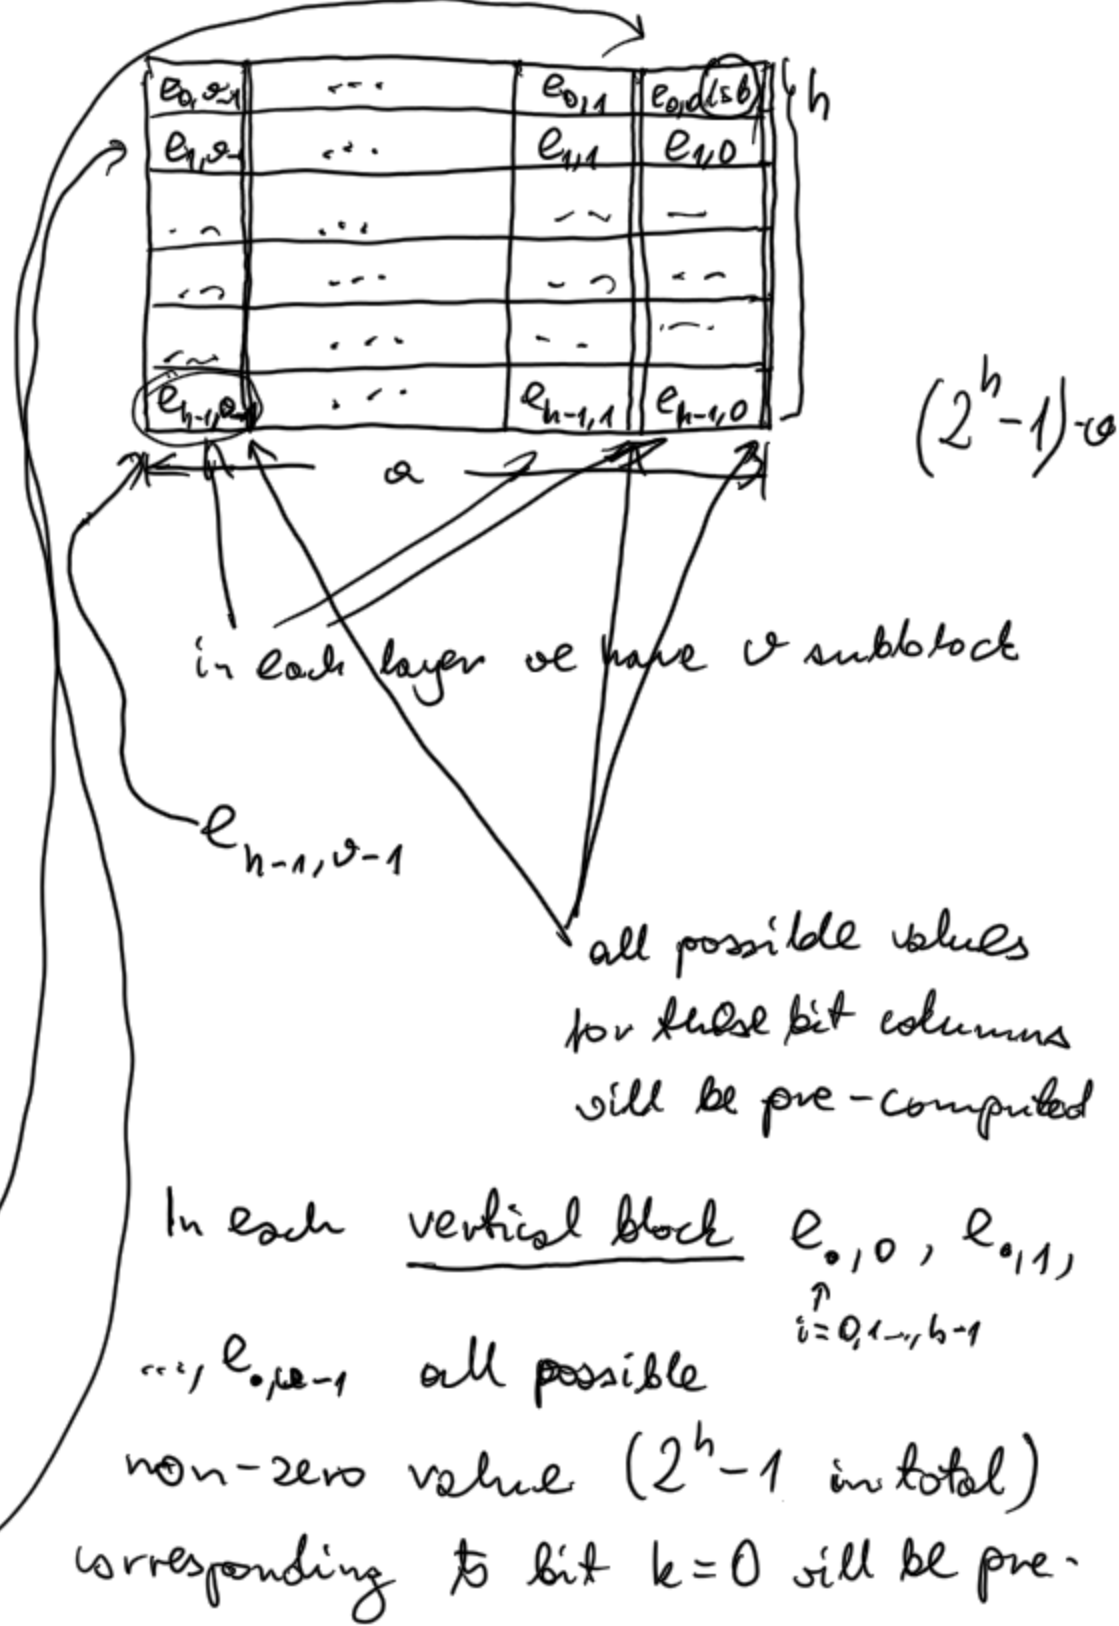 e0,v-1 ... e0,1 e0,0 lsb h
e1,v- ... e1,1 e1,0
...
...
...
eh-1,v-1 ... eh-1,1 eh-1,0
(2^h-1)·v
a
in each layer we have v subblock
eh-1,v-1
all possible values
for these bit columns
will be pre-computed
In each vertical block e•,0, e•,1,
↑
i=0,1..,h-1
..., e•,v-1 all possible
non-zero value (2^h-1 in total)
corresponding to bit k=0 will be pre-